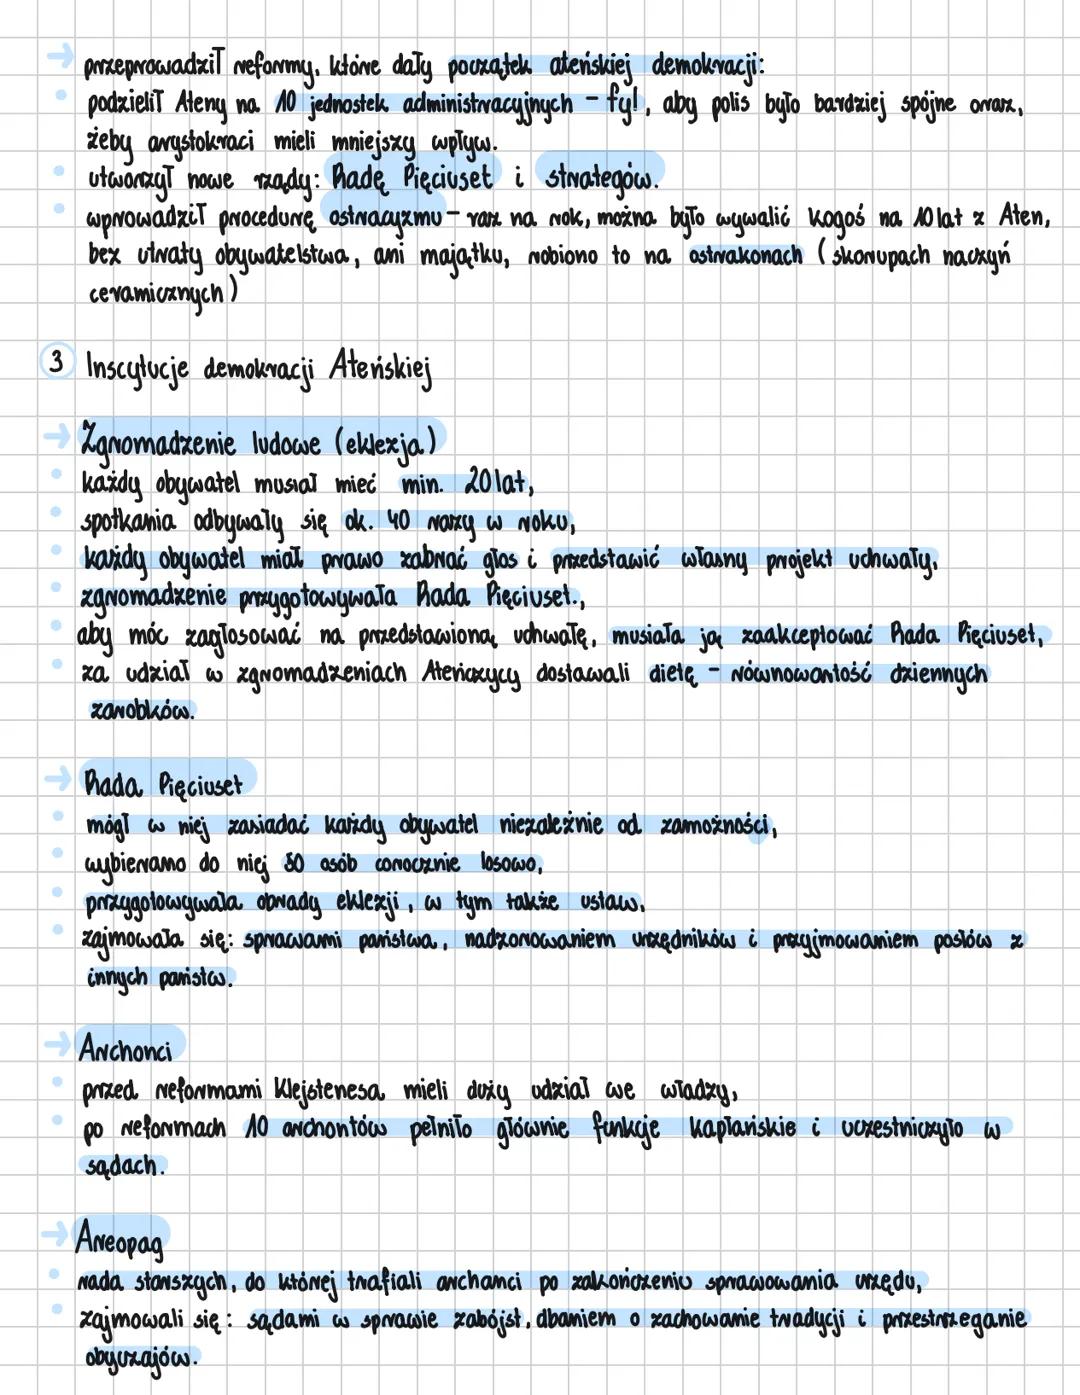 → przeprowadził reformy, które dały początek ateńskiej demokracji:
• podzielił Ateny na 10 jednostek administracyjnych - fyl, aby polis było bardziej spójne oraz,
żeby arystokraci mieli mniejszy wpływ.
• utworzył nowe rządy: Radę Pięciuset i strategów.
• wprowadził procedurę ostracyzmu - raz na rok, można było wywalić kogoś na 10 lat z Aten,
bez utraty obywatelstwa, ani majątku, robiono to na ostrakonach (skorupach naczyń
ceramicznych)
3 Inscytucje demokracji Ateńskiej
→ Zgromadzenie ludowe (eklezja)
• każdy obywatel musiał mieć min. 20 lat,
• spotkania odbywały się ok. 40 razy w roku,
• każdy obywatel miał prawo zabrać głos i przedstawić własny projekt uchwały,
• zgromadzenie przygotowywała Rada Pięciuset.,
• aby móc zagłosować na przedstawioną uchwałę, musiała ją zaakceptować Rada Pięciuset,
• za udział w zgromadzeniach Ateńczycy dostawali dietę - równowartość dziennych
zarobków.
→ Rada Pięciuset
• mógł w niej zasiadać każdy obywatel niezależnie od zamożności,
• wybierano do niej 50 osób corocznie losowo,
• przygotowywała obrady eklezji, w tym także ustaw,
• zajmowała się: sprawami państwa, nadzorowaniem urzędników i przyjmowaniem posłów z
innych państw.
→ Archonci
• przed reformami Klejstenesa mieli duży udział we władzy,
• po reformach 10 archontów pełniło głównie funkcje kapłańskie i uczestniczyło w
sądach.
→ Areopag
• rada starszych, do której trafiali archonci po zakończeniu sprawowania urzędu,
• zajmowali się: sądami w sprawie zabójst, dbaniem o zachowanie tradycji i przestrzeganie
obyczajów.